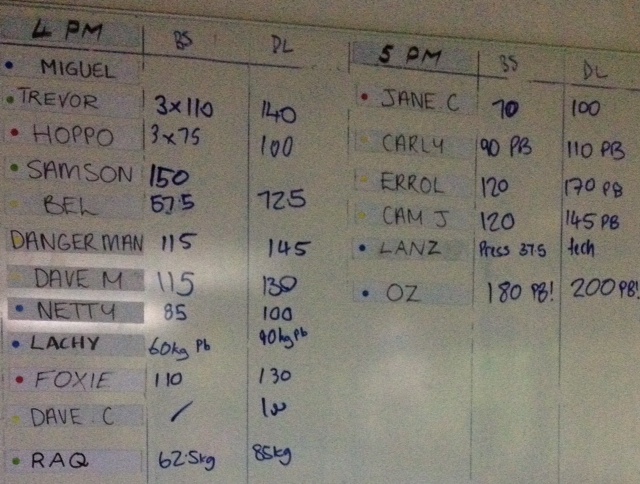 4 PM BS DL
MIGUEL
TREVOR 3x110 140
HOPPO 3x75 100
SAMSON 150
BEL 57.5 72.5
DANGERMAN 115 145
DAVE M 115 130
NETTY 85 100
LACHY 60kg Pb 90kg Pb
FOXIE 110 130
DAVE C / 100
RAQ 62.5kg 85kg
5 PM BS DL
JANE C 70 100
CARLY 90 PB 110 PB
ERROL 120 170 PB
CAM J 120 145 PB
LANZ Press 37.5 tech
OZ 180 PB! 200 PB!